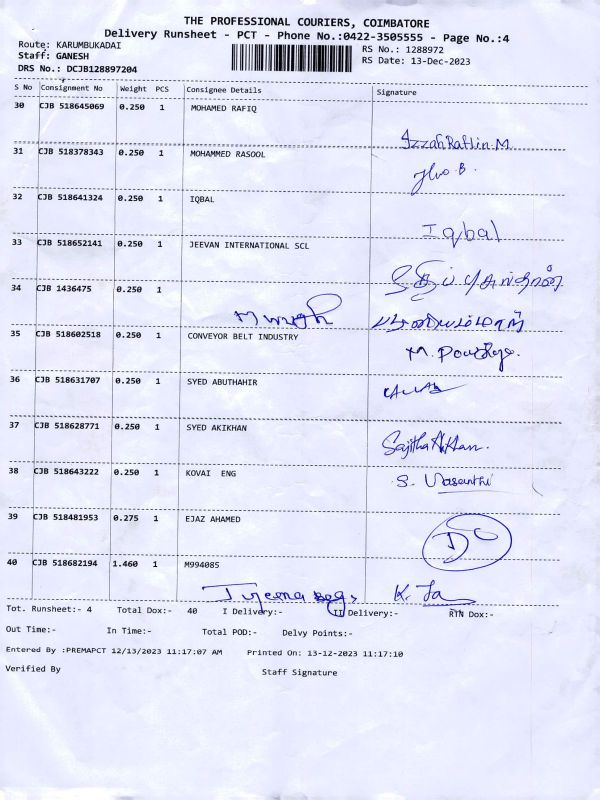 THE PROFESSIONAL COURIERS, COIMBATORE
Delivery Runsheet - PCT - Phone No.:0422-3505555 - Page No.:4
Route: KARUMBUKADAI RS No.: 1288972
Staff: GANESH RS Date: 13-Dec-2023
DRS No.: DCJB128897204
S No Consignment No Weight PCS Consignee Details Signature
30 CJB 518645069 0.250 1 MOHAMED RAFIQ
31 CJB 518378343 0.250 1 MOHAMMED RASOOL
32 CJB 518641324 0.250 1 IQBAL
Iqbal
33 CJB 518652141 0.250 1 JEEVAN INTERNATIONAL SCL
34 CJB 1436475 0.250 1
35 CJB 518602518 0.250 1 CONVEYOR BELT INDUSTRY
36 CJB 518631707 0.250 1 SYED ABUTHAHIR
37 CJB 518628771 0.250 1 SYED AKIKHAN
38 CJB 518643222 0.250 1 KOVAI ENG
S. Vasanthi
39 CJB 518481953 0.275 1 EJAZ AHAMED
40 CJB 518682194 1.460 1 M994085
Tot. Runsheet:- 4 Total Dox:- 40 I Delivery:- II Delivery:- RTN Dox:-
Out Time:- In Time:- Total POD:- Delvy Points:-
Entered By :PREMAPCT 12/13/2023 11:17:07 AM Printed On: 13-12-2023 11:17:10
Verified By Staff Signature